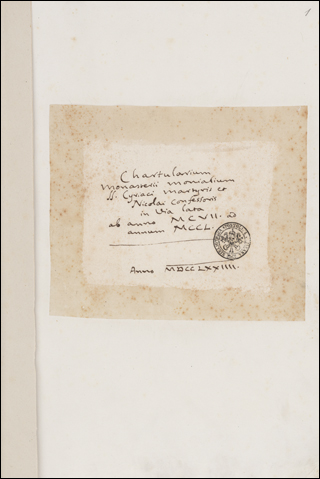 1
Chartularium
Monasterii monialium
SS. Cyriaci Martyris et
Nicolai Confessoris
in Via Lata
ab anno MCVII. ad
annum MCCL.
Anno MDCCLXXIIII.